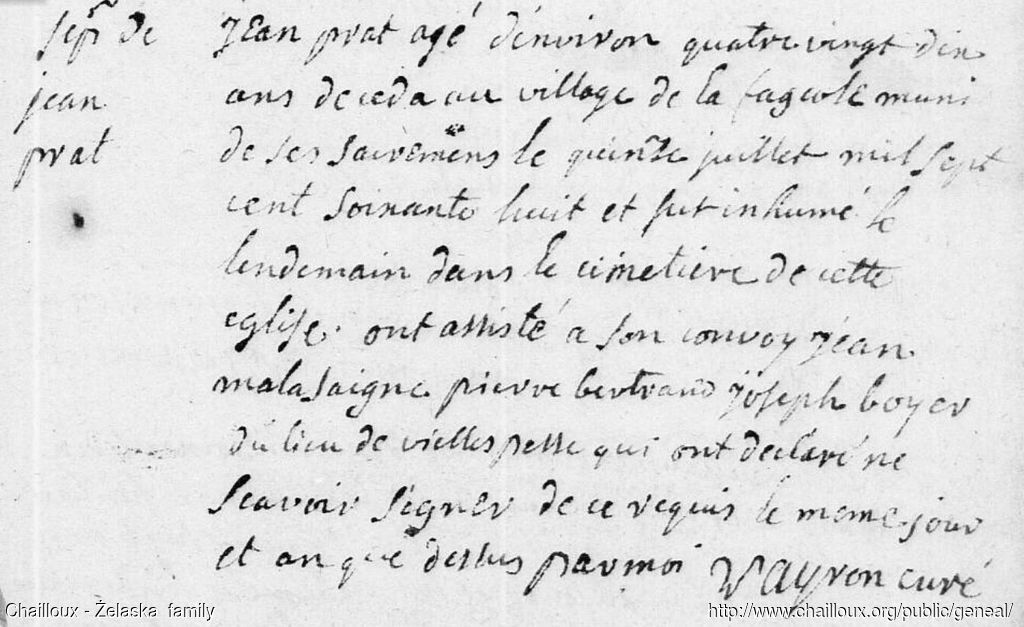 sepre de
jean
prat
jean prat agé d'environ quatre vingt dix
ans deceda au village de la fageole muni
de ses sacremens le quinze juillet mil sept
cent soixante huit et fut inhumé le
lendemain dans le cimetiere de cette
eglise. ont assisté a son convoy jean
malasaigne pierre bertrand joseph boyer
du lieu de viellespesse qui ont declaré ne
scavoir signer de ce requis le meme jour
et an que dessus par moi Vayron curé
Chailloux - Želaska family
http://www.chailloux.org/public/geneal/